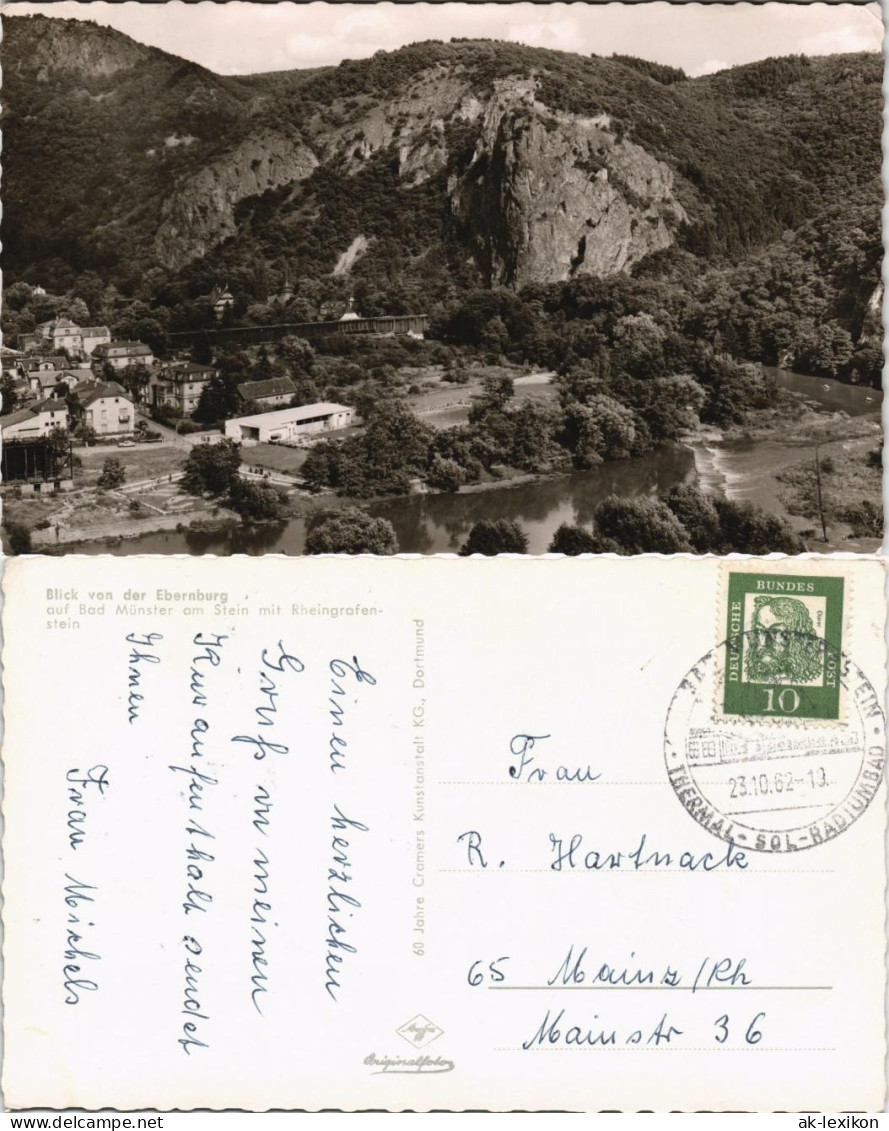 Blick von der Ebernburg
auf Bad Münster am Stein mit Rheingrafen-
stein
Einen herzlichen
Gruß von meinen
Kuraufenthalt sendet
Ihnen
Frau Michels
60 Jahre Cramers Kunstanstalt KG., Dortmund
Agfa
Originalfoto
DEUTSCHE
BUNDES
POST
Dürer
10
BAD MÜNSTER A. STEIN
23.10.62-19
THERMAL-SOL-RADIUMBAD
Frau
R. Hartnack
65 Mainz/Rh
Mainstr 36
www.delcampe.net
ak-lexikon